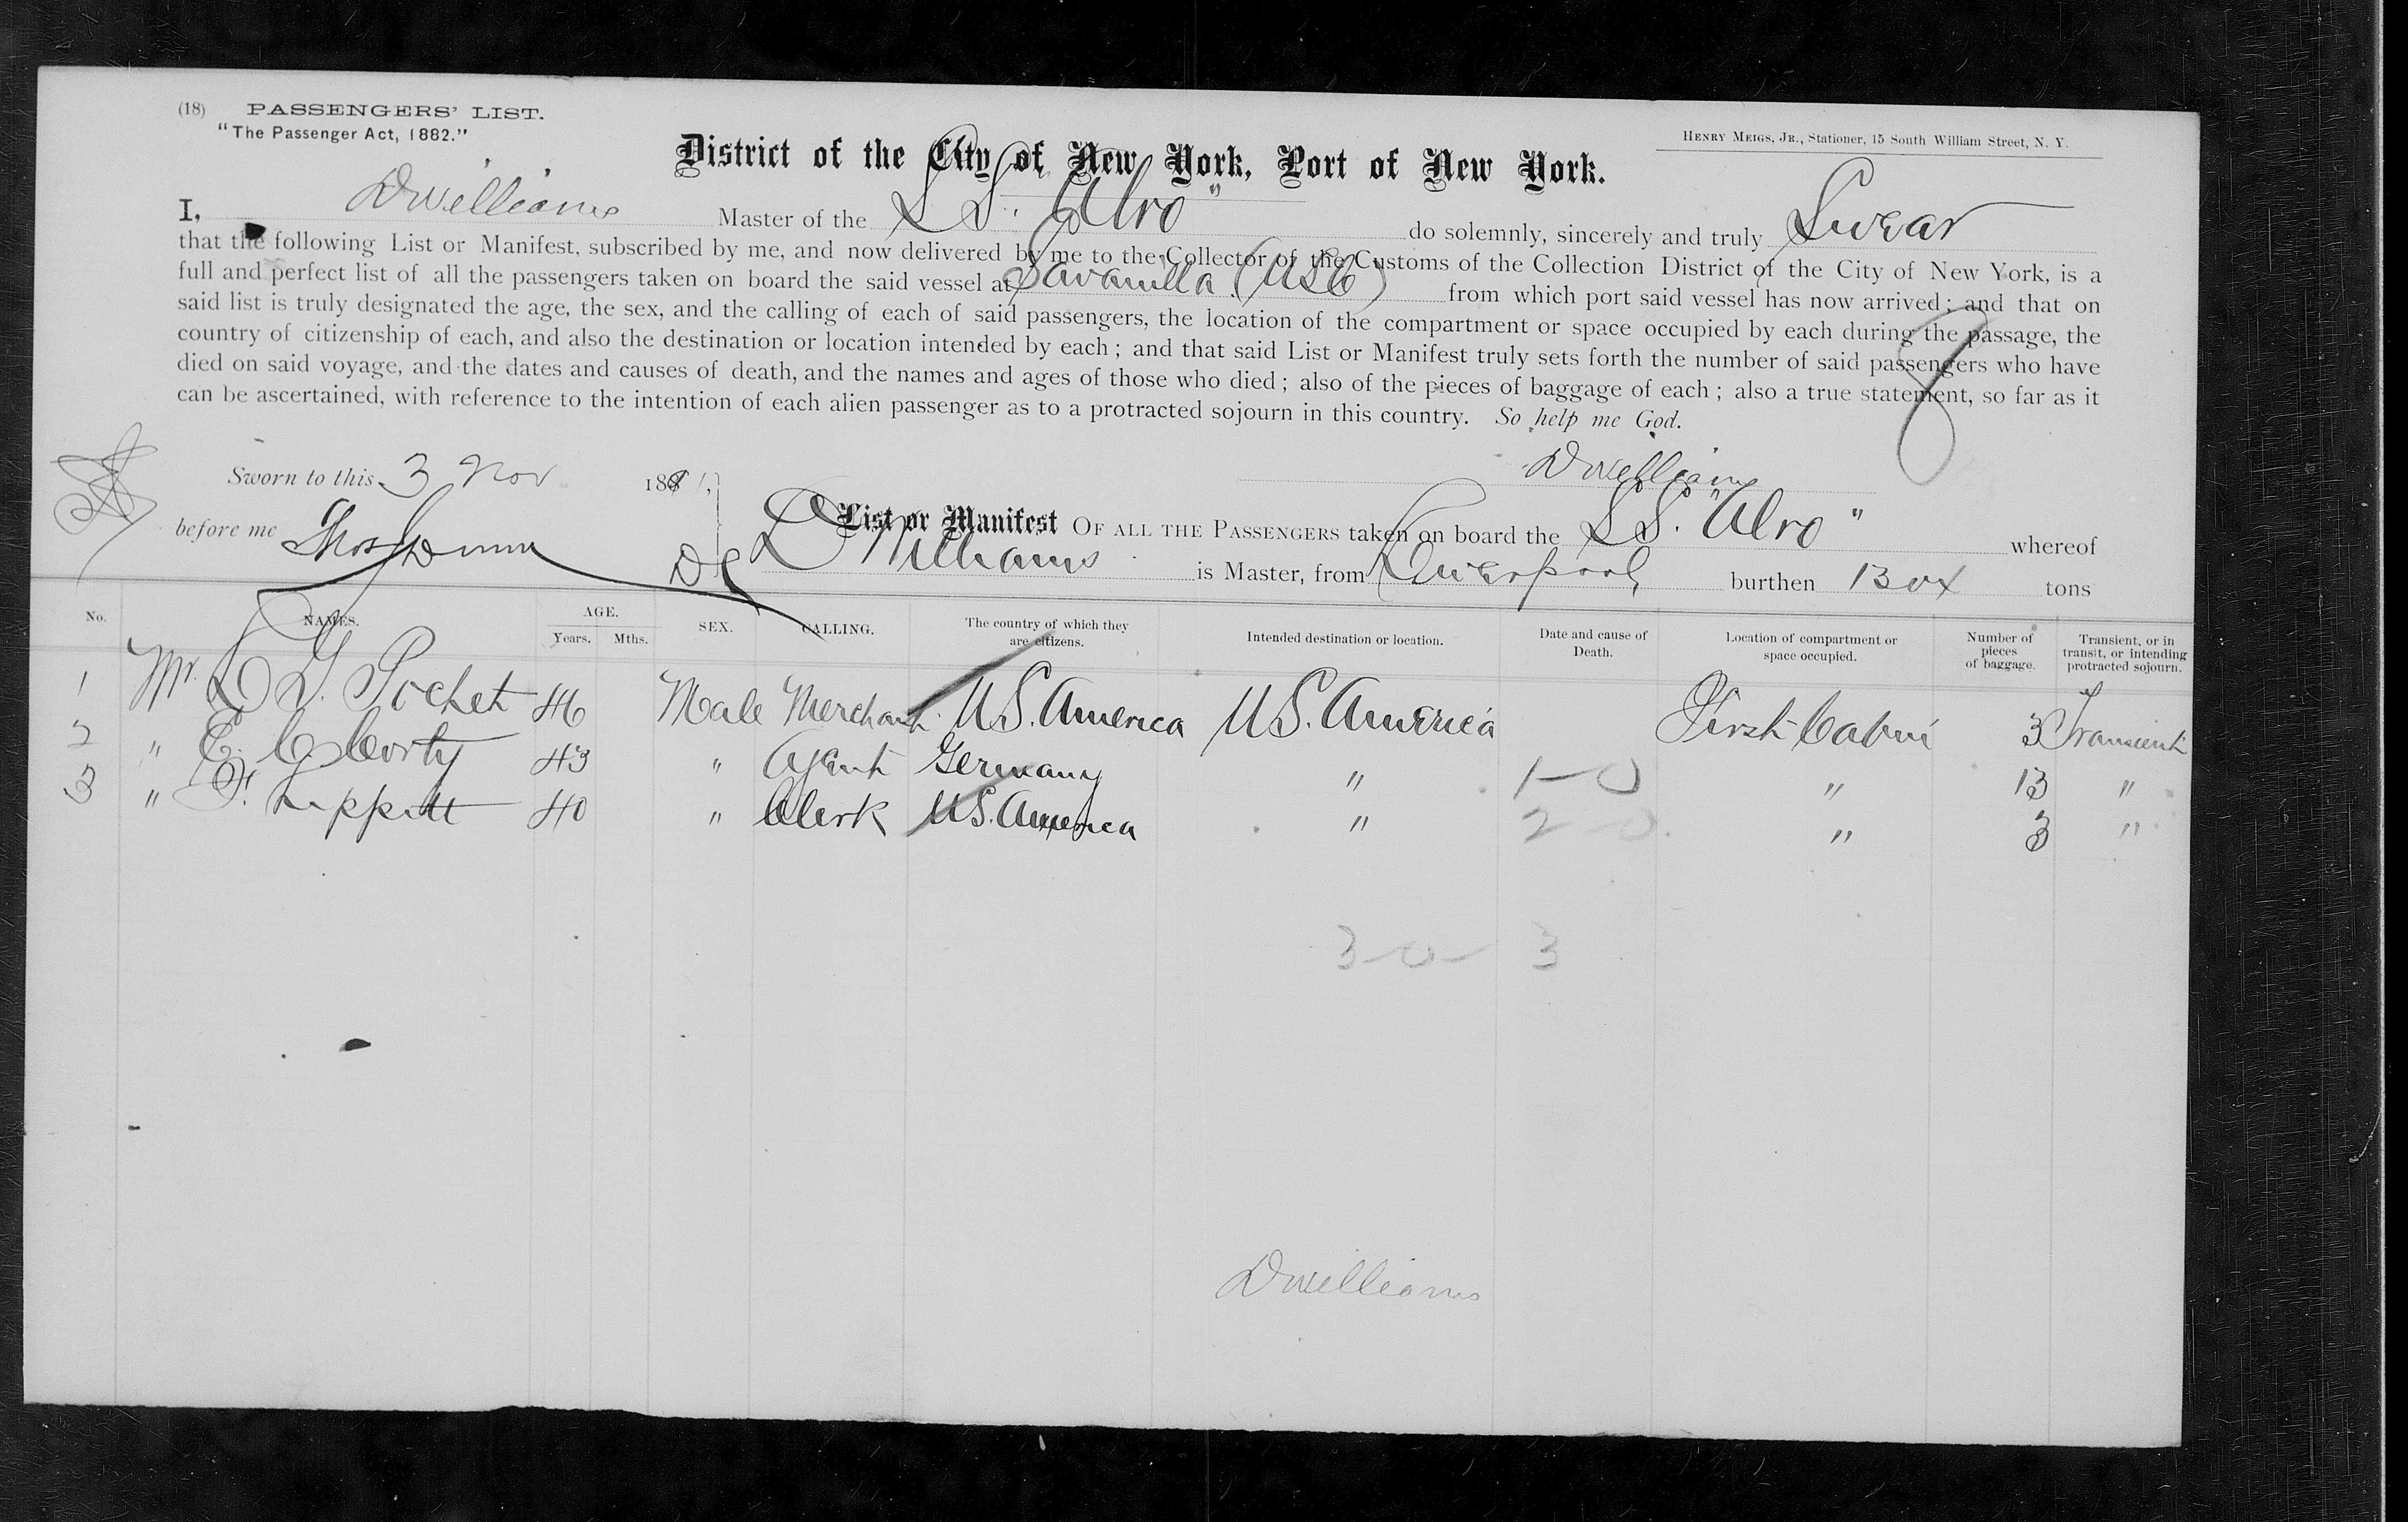 (18) PASSENGERS' LIST.
"The Passenger Act, 1882."
HENRY MEIGS, JR., Stationer, 15 South William Street, N. Y.
District of the City of New York, Port of New York.
I, D Williams Master of the S S. "Alvo" do solemnly, sincerely and truly Swear
that the following List or Manifest, subscribed by me, and now delivered by me to the Collector of the Customs of the Collection District of the City of New York, is a
full and perfect list of all the passengers taken on board the said vessel at Savanilla (USC) from which port said vessel has now arrived; and that on
said list is truly designated the age, the sex, and the calling of each of said passengers, the location of the compartment or space occupied by each during the passage, the
country of citizenship of each, and also the destination or location intended by each; and that said List or Manifest truly sets forth the number of said passengers who have
died on said voyage, and the dates and causes of death, and the names and ages of those who died; also of the pieces of baggage of each; also a true statement, so far as it
can be ascertained, with reference to the intention of each alien passenger as to a protracted sojourn in this country. So help me God.
Sworn to this 3 Nov 1891, D Williams
before me Thos Dunn DC
List or Manifest OF ALL THE PASSENGERS taken on board the S S. "Alvo" whereof
D Williams is Master, from Liverpool burthen tons
No. NAMES. AGE. Years. Mths. SEX. CALLING. The country of which they are citizens. Intended destination or location. Date and cause of Death. Location of compartment or space occupied. Number of pieces of baggage. Transient, or in transit, or intending protracted sojourn.
1 Mr. D G. Pochet 46 Male Merchant U S. America U S. America First Cabin 3 Transient
2 " E. C. Corty 43 " Agent Germany " 1-0 " 13 "
3 " F. Lippitt 40 " Clerk U S. America " 2-0 " 3 "
3-0-3
D Williams